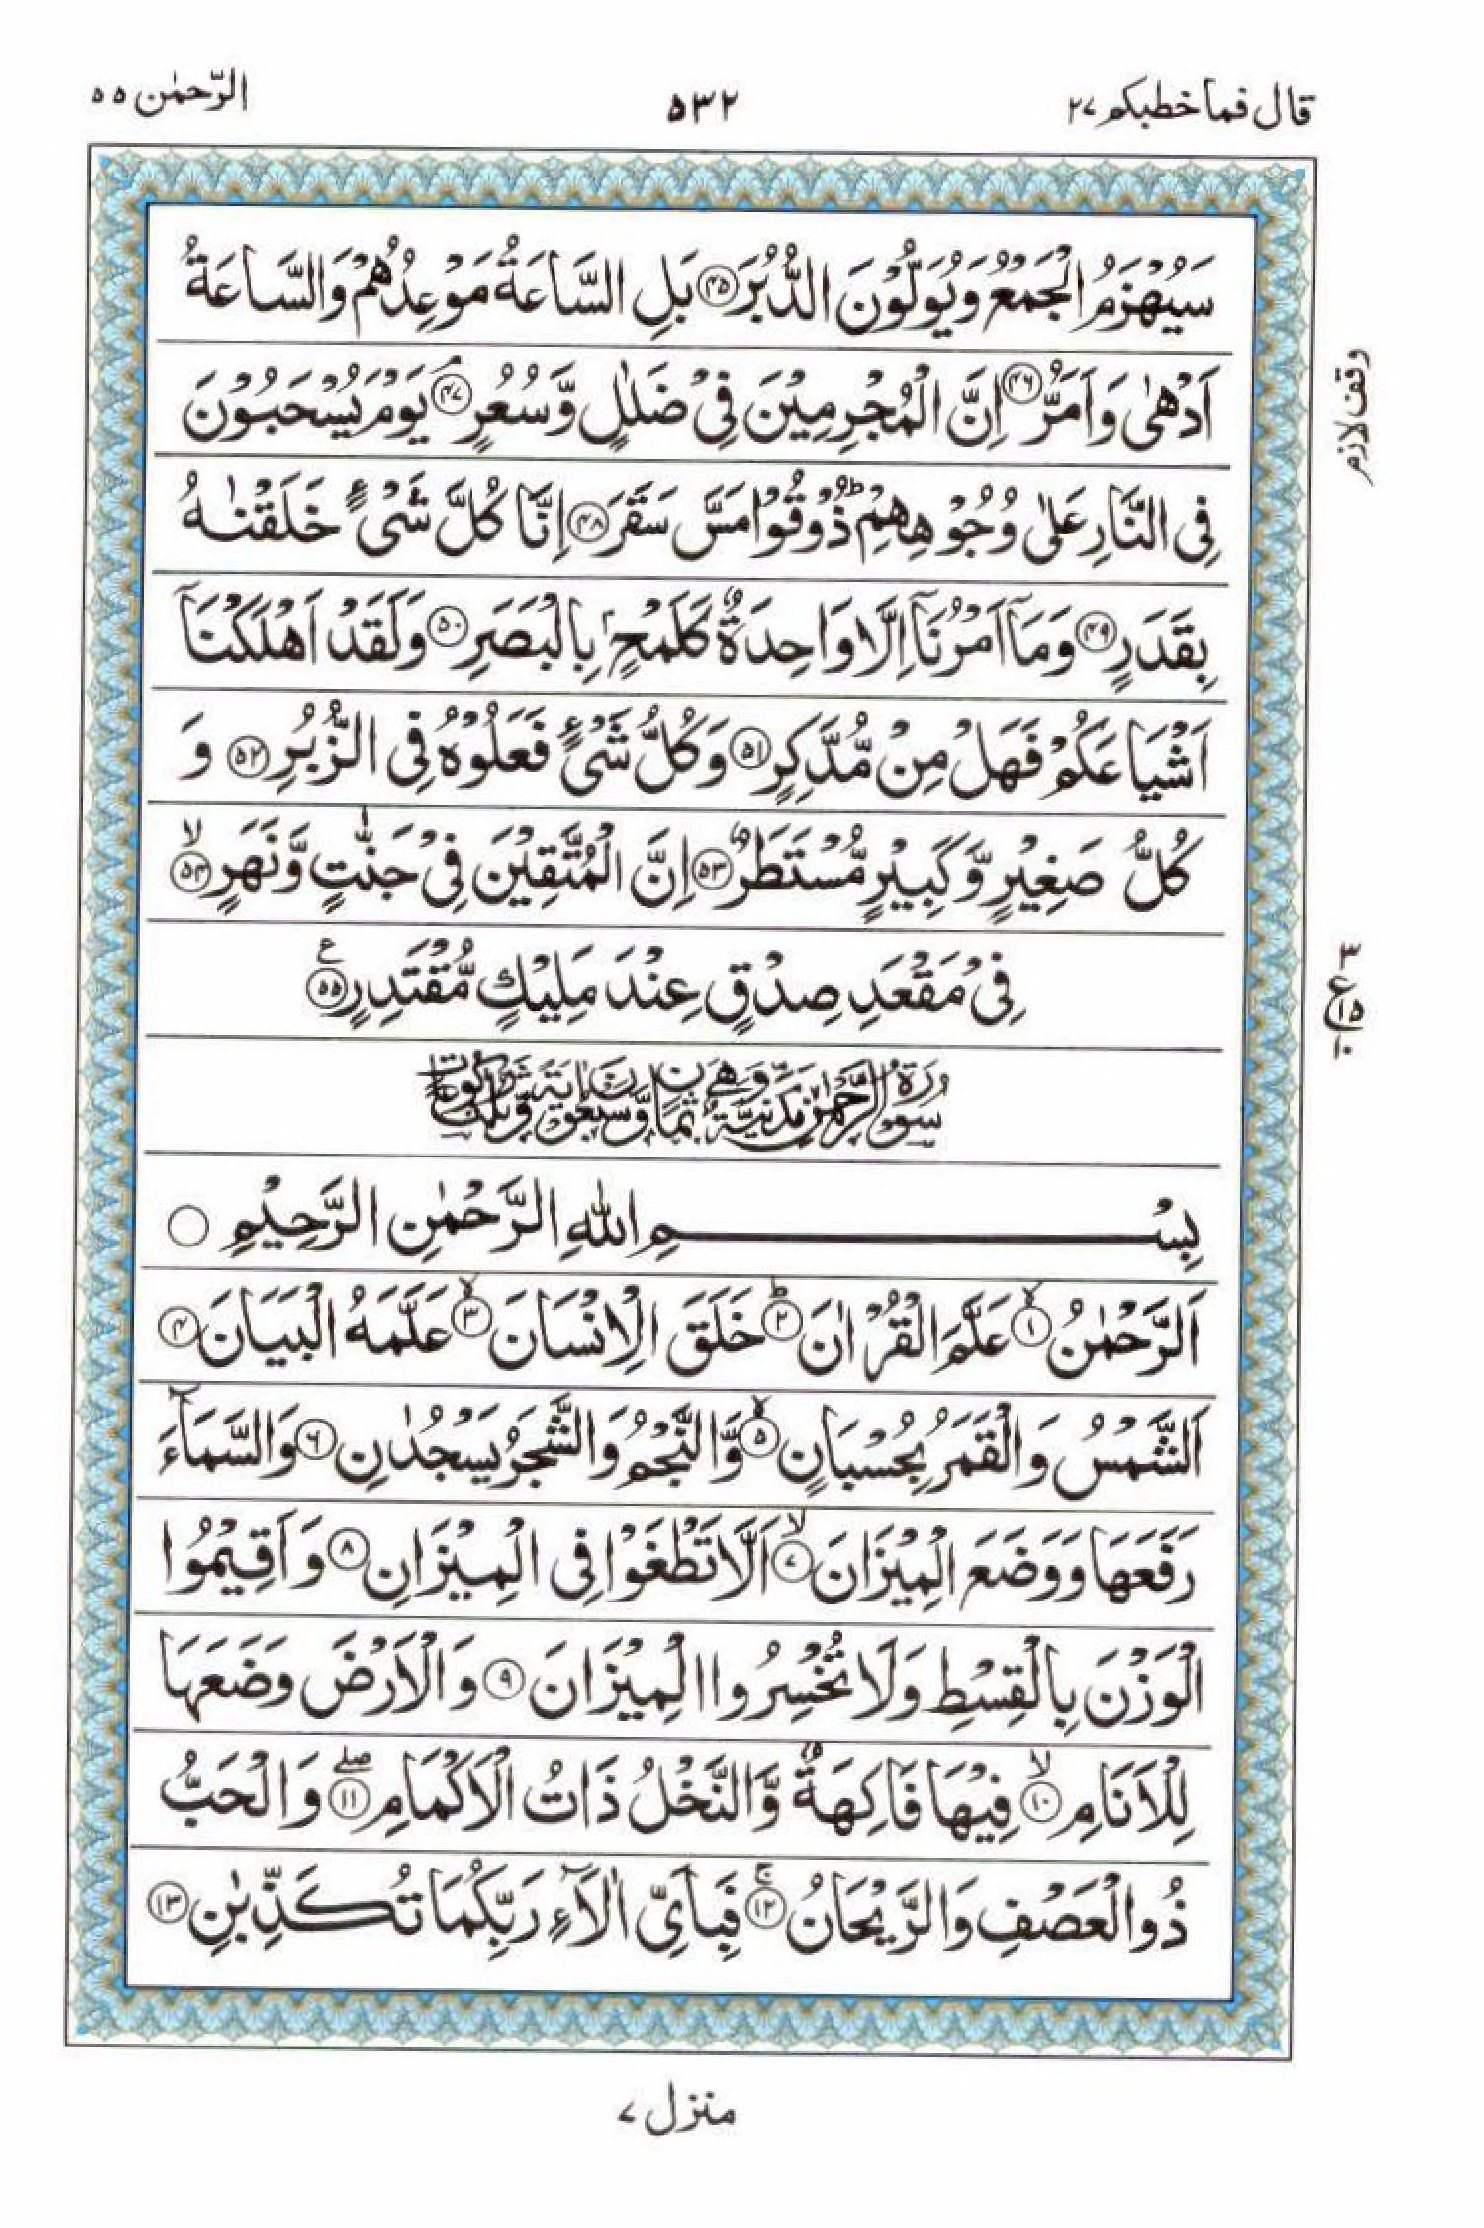 قال فما خطبكم ٢٧
٥٣٢
الرّحمٰن ٥٥
سَيُهْزَمُ الْجَمْعُ وَيُوَلُّوْنَ الدُّبُرَ ﴿٤٥﴾ بَلِ السَّاعَةُ مَوْعِدُهُمْ وَالسَّاعَةُ
اَدْهٰى وَاَمَرُّ ﴿٤٦﴾ اِنَّ الْمُجْرِمِيْنَ فِيْ ضَلٰلٍ وَّسُعُرٍ ۘ﴿٤٧﴾ يَوْمَ يُسْحَبُوْنَ
وقف لازم
فِى النَّارِ عَلٰى وُجُوْهِهِمْ ؕ ذُوْقُوْا مَسَّ سَقَرَ ﴿٤٨﴾ اِنَّا كُلَّ شَىْءٍ خَلَقْنٰهُ
بِقَدَرٍ ﴿٤٩﴾ وَمَاۤ اَمْرُنَاۤ اِلَّا وَاحِدَةٌ كَلَمْحٍۭ بِالْبَصَرِ ﴿٥٠﴾ وَلَقَدْ اَهْلَكْنَاۤ
اَشْيَاعَكُمْ فَهَلْ مِنْ مُّدَّكِرٍ ﴿٥١﴾ وَكُلُّ شَىْءٍ فَعَلُوْهُ فِى الزُّبُرِ ﴿٥٢﴾ وَ
كُلُّ صَغِيْرٍ وَّكَبِيْرٍ مُّسْتَطَرٌ ﴿٥٣﴾ اِنَّ الْمُتَّقِيْنَ فِيْ جَنّٰتٍ وَّنَهَرٍ ۙ﴿٥٤﴾
فِيْ مَقْعَدِ صِدْقٍ عِنْدَ مَلِيْكٍ مُّقْتَدِرٍ ﴿٥٥﴾ ع
٣
ع
١٥
١٠
سُوْرَةُ الرَّحْمٰنِ مَدَنِيَّةٌ وَّهِيَ ثَمَانٌ وَّسَبْعُوْنَ اٰيَةً وَّثَلٰثُ رُكُوْعَاتٍ
بِسْمِ اللّٰهِ الرَّحْمٰنِ الرَّحِيْمِ ○
اَلرَّحْمٰنُ ۙ﴿١﴾ عَلَّمَ الْقُرْاٰنَ ؕ﴿٢﴾ خَلَقَ الْاِنْسَانَ ۙ﴿٣﴾ عَلَّمَهُ الْبَيَانَ ﴿٤﴾
اَلشَّمْسُ وَالْقَمَرُ بِحُسْبَانٍ ۙ﴿٥﴾ وَّالنَّجْمُ وَالشَّجَرُ يَسْجُدٰنِ ﴿٦﴾ وَالسَّمَآءَ
رَفَعَهَا وَوَضَعَ الْمِيْزَانَ ۙ﴿٧﴾ اَلَّا تَطْغَوْا فِى الْمِيْزَانِ ﴿٨﴾ وَاَقِيْمُوا
الْوَزْنَ بِالْقِسْطِ وَلَا تُخْسِرُوا الْمِيْزَانَ ﴿٩﴾ وَالْاَرْضَ وَضَعَهَا
لِلْاَنَامِ ۙ﴿١٠﴾ فِيْهَا فَاكِهَةٌ وَّالنَّخْلُ ذَاتُ الْاَكْمَامِ ۖ﴿١١﴾ وَالْحَبُّ
ذُو الْعَصْفِ وَالرَّيْحَانُ ۚ﴿١٢﴾ فَبِاَىِّ اٰلَآءِ رَبِّكُمَا تُكَذِّبٰنِ ﴿١٣﴾
منزل ٧